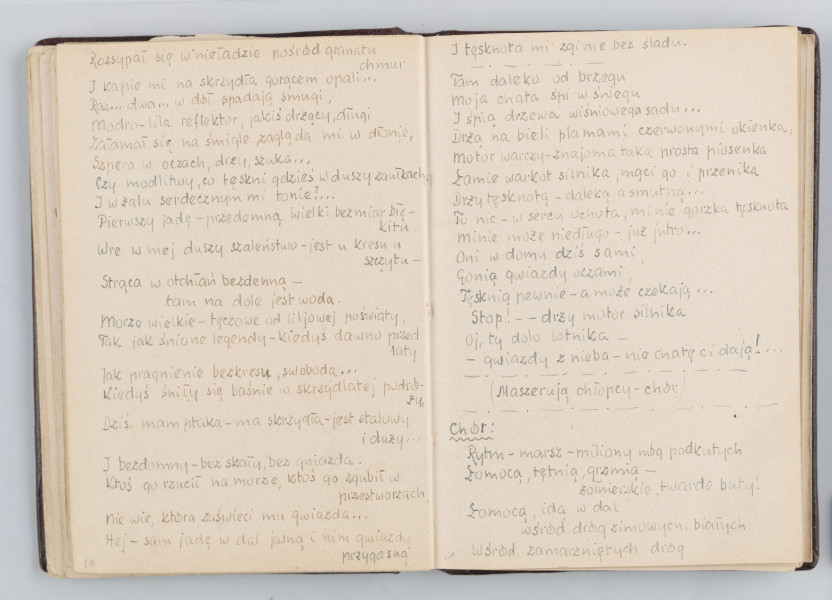 Rozsypał się w nieładzie pośród granatu
chmur
I kapie mi na skrzydła gorącem opali...
Raz... dwa... w dół spadają smugi,
Modro-lila reflektor, jakiś drżący, długi
Załamał się na śmigle zagląda mi w dłonie,
Szpera w oczach, drży, szuka...
Czy modlitwy, co tęskni gdzieś w duszy zaułkach,
I w żalu serdecznym mi tonie?...
Pierwszy jadę - przedemną wielki bezmiar błę-
kitu
Wre w mej duszy szaleństwo - jest u kresu u
szczytu -
Strąca w otchłań bezdenną -
tam na dole jest woda.
Morze wielkie - tęczowe od liljowej poświaty,
Tak jak śnione legendy - kiedyś dawno przed
laty
Jak pragnienie bezkresu, swoboda...
Kiedyś śniły się baśnie o skrzydlatej podró-
ży,
Dziś mam ptaka - ma skrzydła - jest stalowy
i duży...
I bezdomny - bez skały, bez gniazda.
Ktoś go rzucił na morze, ktoś go zgubił w
przestworzach,
Nie wie, która zaświeci mu gwiazda...
Hej - sam jadę w dal jasną i nim gwiazdy
przygasną
I tęsknota mi zginie bez śladu.
Tam daleko od brzegu
Moja chata śpi w śniegu
I śpią drzewa wiśniowego sadu...
Drżą na bieli plamami czerwonymi okienka,
Motor warczy - znajoma taka prosta piosenka
Łamie warkot silnika, mąci go i przenika
Drży tęsknotą - daleką a smutną...
To nic - w sercu ochota, minie gorzka tęsknota
Minie może niedługo - już jutro...
Oni w domu dziś sami,
Gonią gwiazdy oczami,
Tęsknią pewnie - a może czekają...
Stop! - - drży motor silnika
Oj, ty dolo lotnika -
- gwiazdy z nieba - nie chatę ci dają!...
(Maszerują chłopcy - chór)
Chór:
Rytm - marsz - miliony nóg podkutych
Łomocą, tętnią, grzmią -
żołnierskie, twarde buty!
Łomocą, idą w dal
wśród dróg zimowych, białych
Wśród zamarzniętych dróg